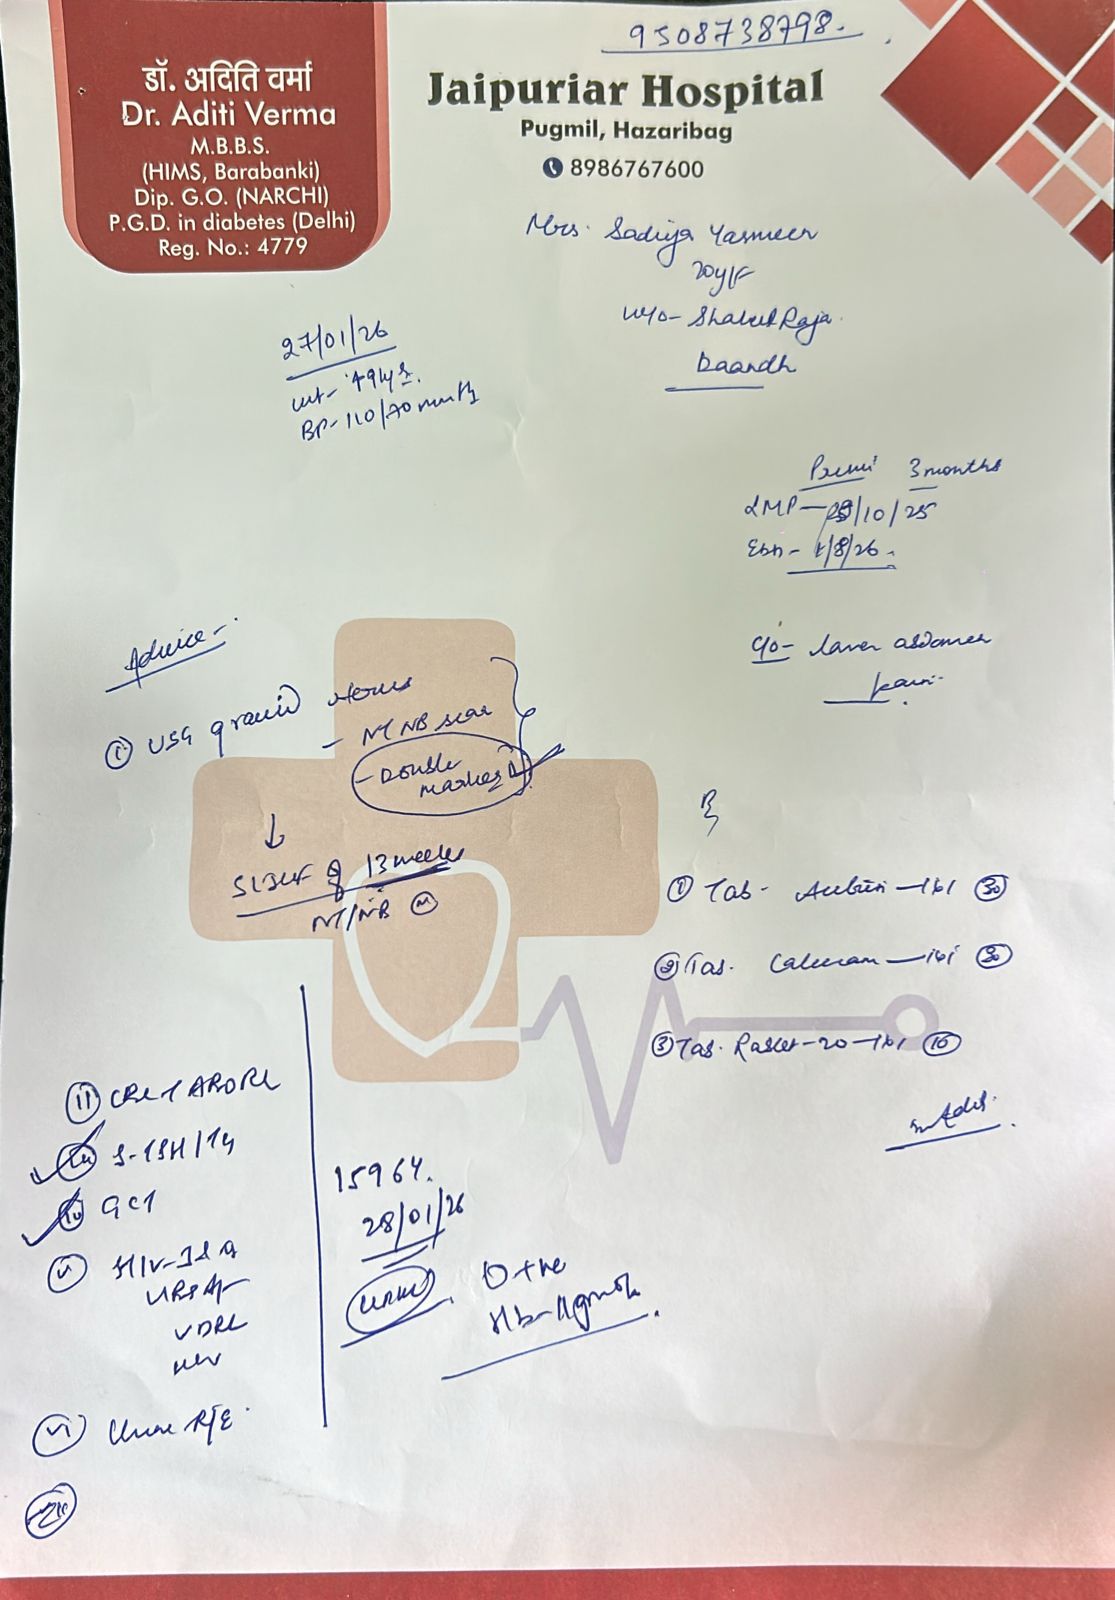 9508738798.
डॉ. अदिति वर्मा
Dr. Aditi Verma
M.B.B.S.
(HIMS, Barabanki)
Dip. G.O. (NARCHI)
P.G.D. in diabetes (Delhi)
Reg. No.: 4779
Jaipuriar Hospital
Pugmil, Hazaribag
8986767600
Mrs. Sadiya Yasmeen
20y/F
W/o- Raja.
27/01/26
wt- 49kgs.
BP- 110/70 mmHg
Primi 3 months
LMP - /10/25
EDD - 1/8/26.
Advice -
c/o- lower abdomen
pain.
(i) USG gravid uterus
- NT NB scan
- Double
marker
↓
SLIUF of 13 weeks
NT/NB (N)
① Tab - 30
② Tab. 30
③ Tab. -20- 10
(ii) CBC + ABORh
S-TSH/T4
GCT
(v) HIV-I & II
HBsAg
VDRL
HCV
(vi) Urine R/E.
15964.
28/01/26
O +ve
Hb-